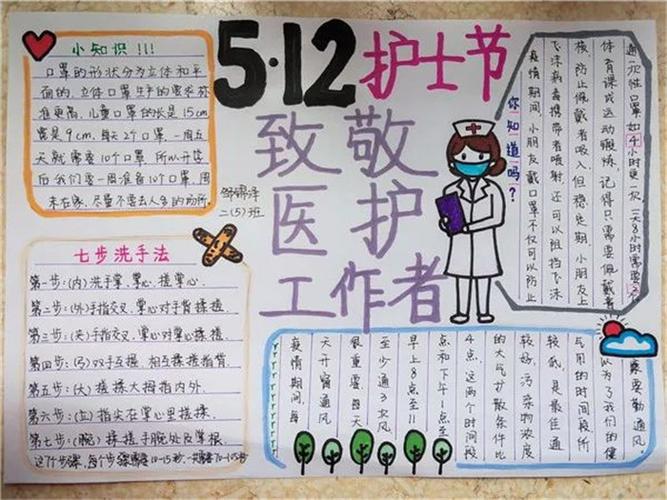 5·12护士节
致敬
医护
工作者
二(5)班
小知识!!!
口罩的形状分为立体和平
面的,立体口罩生产的要求称
准更高,儿童口罩的长是15cm
宽是9cm,每天2个口罩,一周五
天就需要10个口罩,所以开学
后我们要一周准备10个口罩,周
末在家,尽量不要去人多的场所。
七步洗手法
第一步:(内)洗手掌,掌心,搓掌心.
第二步:(外)手指交叉,掌心对手背揉搓,
第三步:(夹)手指交叉,掌心对掌心揉搓,
第四步:(弓)双手互握,相互揉搓指背.
第五步:(大)搓揉大拇指内外.
第六步:(立)指尖在掌心里搓揉.
第七步:(腕)揉搓手腕处及掌根.
你知道吗?
疫情期间,小朋友戴口罩不仅可以防止
飞沫病毒携带者喷射,还可以阻挡飞沫
核,防止佩戴者吸入,但稳定期,小朋友上
体育课或运动锻炼,记得只需要佩戴普
通一次性口罩,如4小时更一次,一天8小时需要2个
疫情期间,每
天开窗通风
很重要,每天
至少通3次风
早上8点至11
点和下午1点至
4点,这两个时间段
的大气扩散条件比
较好,污染物浓度
较低,是最佳通
气用的时间段,所
以为了我们的健
康要勤通风